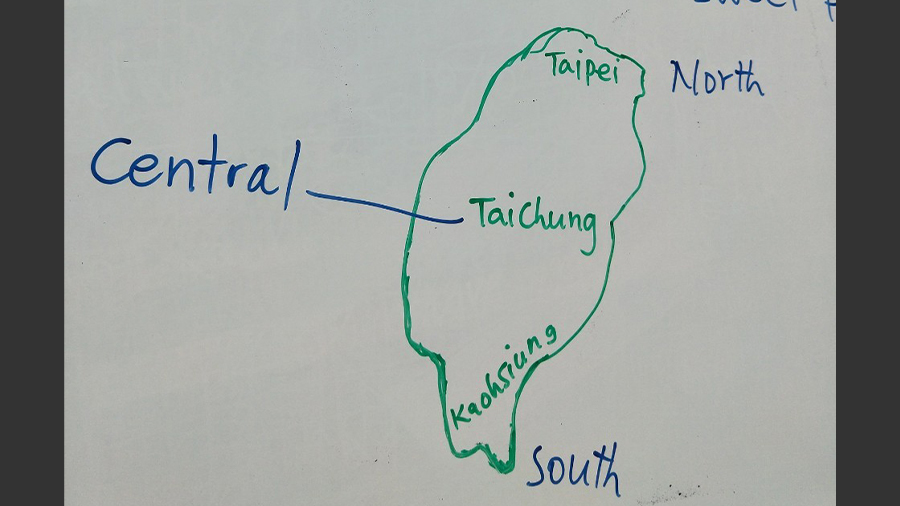 Taipei
North
Central
TaiChung
Kaohsiung
South